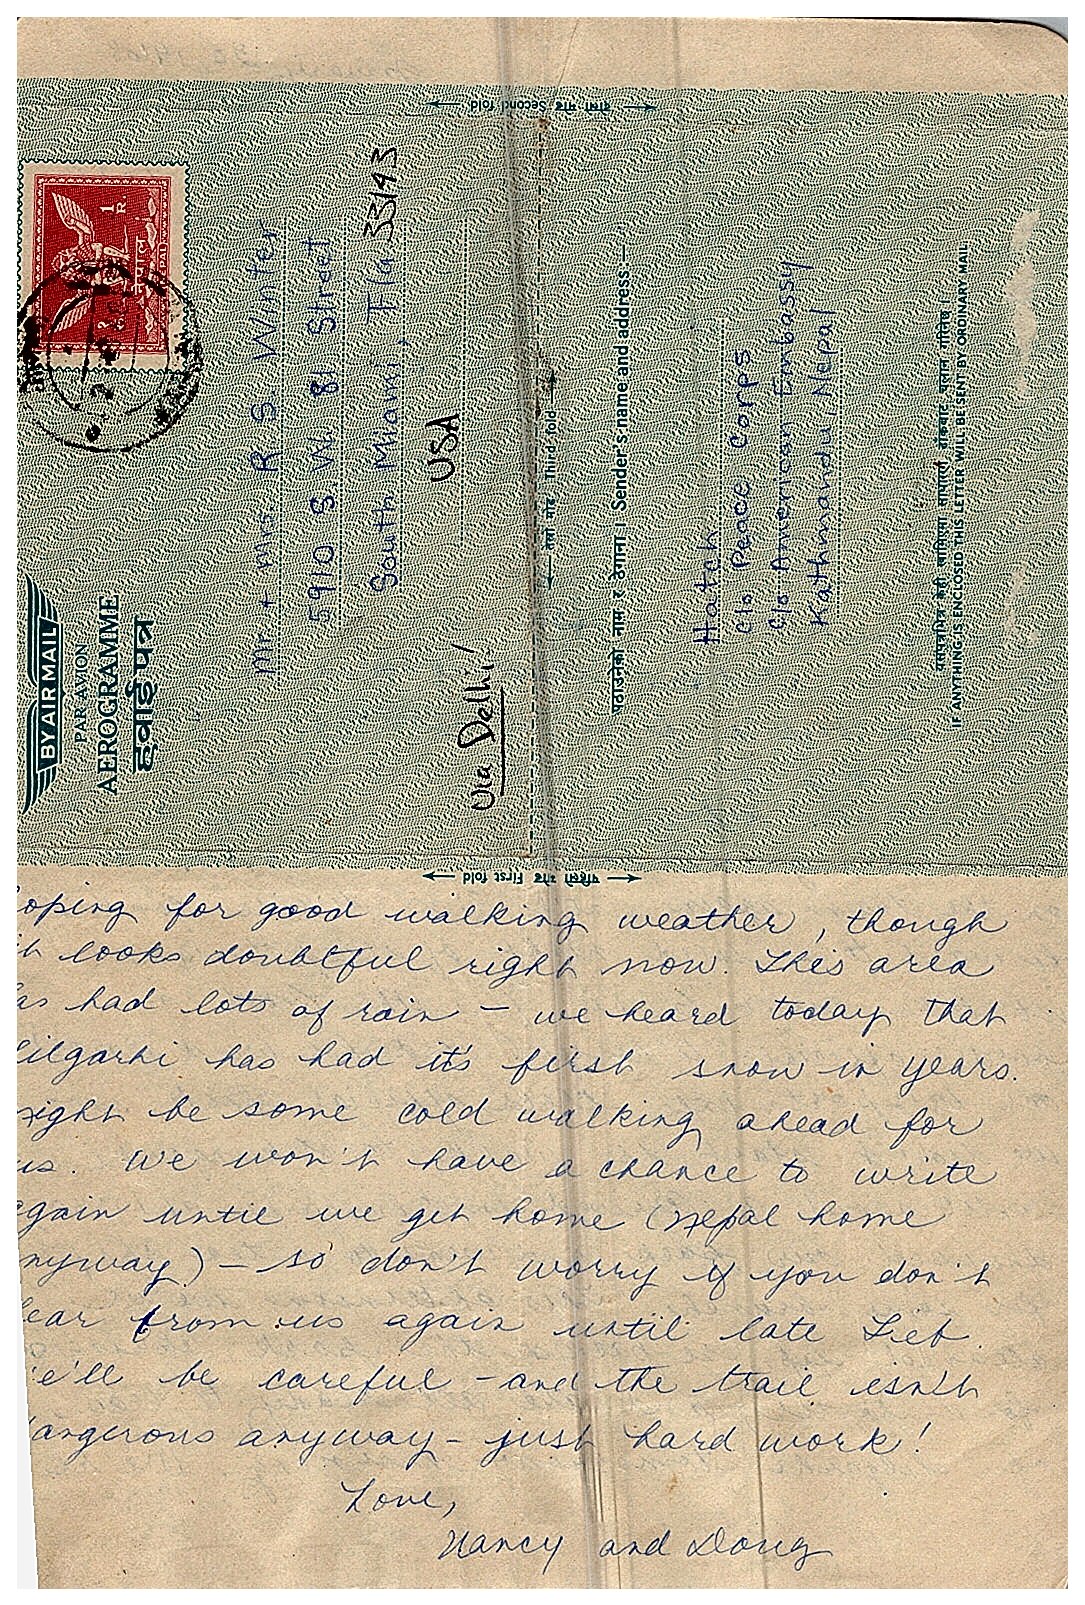 दोस्रो मोड Second fold
नेपाल
NEPAL
1 R
BY AIR MAIL
PAR AVION
AEROGRAMME
हवाई पत्र
Mr + Mrs. R. S. Winter
5910 S. W. 81 Street
South Miami, Fla. 33143
USA
Via Delhi!
तेस्रो मोड Third fold
पठाउनेको नाम र ठेगाना । Sender's name and address:—
Hatch
c/o Peace Corps
c/o American Embassy
Kathmandu, Nepal
IF ANYTHING IS ENCLOSED THIS LETTER WILL BE SENT BY ORDINARY MAIL
पहिलो मोड First fold
oping for good walking weather, though
it looks doubtful right now. This area
as had lots of rain – we heard today that
ilgarhi has had it's first snow in years.
might be some cold walking ahead for
us. We won't have a chance to write
again until we get home (Nepal home
nyway) – so don't worry if you don't
ear from us again until late Feb.
e'll be careful – and the trail isn't
dangerous anyway – just hard work!
Love,
Nancy and Doug